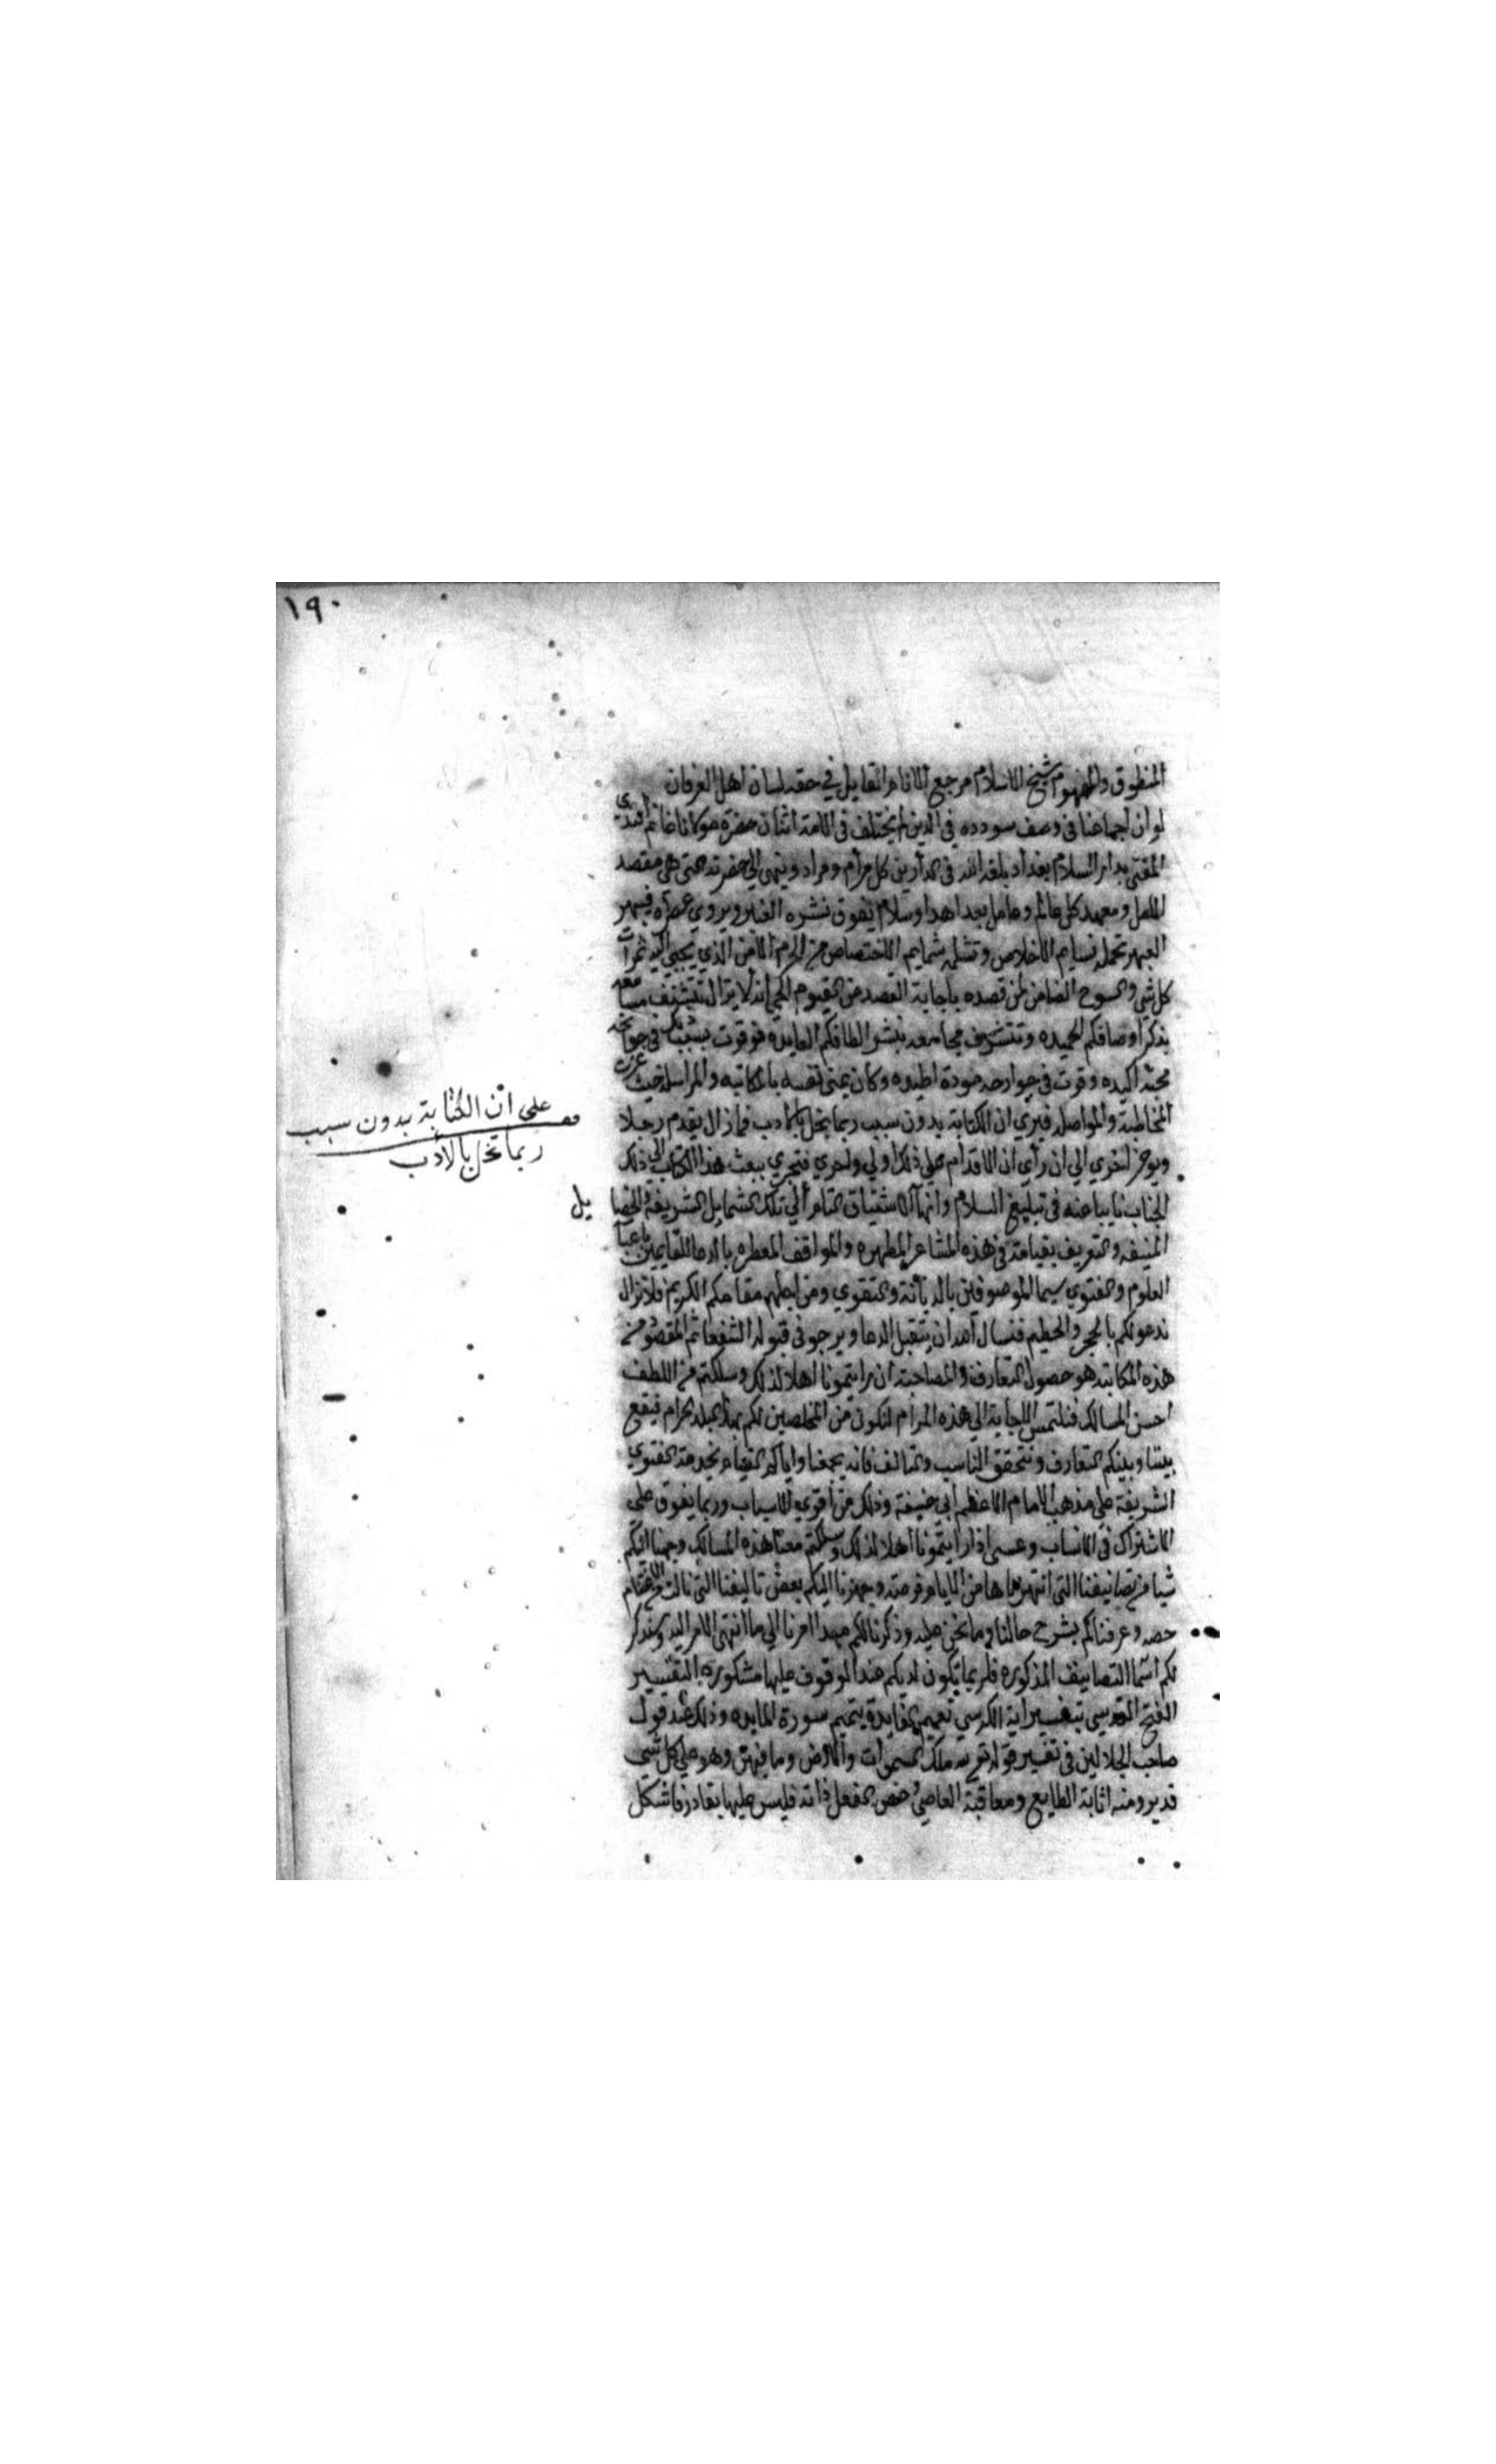 ١٩٠
المنطوق والمفهوم شيخ الاسلام مرجع الانام القايل في حقه لسان اهل العرفان
لو ان اجماعنا في وصف سودده في الدين لم يختلف في الامة اثنان حضرة مولانا غانم افندي
المفتي بدار السلام بغداد بلغه الله في الدارين كل مرام ومراد وينهي الي حضرته التي هي مقصد
الامل ومعهد كل عالم وعامل بعد اهدا وسلام يفوق نشره العنبر ويروي عطره فيبهر
العبهر تحمله نسايم الاخلاص وتشمله شمايم الاختصاص من الحرم الامن الذي يجبي اليه ثمرات
كل شي والسوح الضامن لمن قصده باجابة القصد من القيوم الحي انه لا يزال تتشنف مسامعه
بذكر اوصافكم الحميده وتتشرف مجامعه بنشر الطافكم العايده فوقرت بسبب ذلك في جوانحه
محبة اكيده وقرت في جوارحه مودة اطيده وكان يمني نفسه بالمكاتبه والمراسله حيث عزت
المخاطبة والمواصله فيري ان الكتابه بدون سبب ربما يخل بالادب فما زال يقدم رجلا
ويوخر اخري الي ان رأي ان الاقدام علي ذلك اولي واحري فتجري ببعث هذا الكتاب الي ذلك
الجناب نايبا عنه في تبليغ السلام وانهآ الاشتياق التام الي تلك الشمايل الشريفه والخصايل
المنيفه والتعريف بقيامه في هذه المشاعر المطهره والمواقف المعطره بالدعا للقايمين باعبا
العلوم والفتوي سيما الموصوفين بالديانة والتقوي ومن اجلهم مقامكم الكريم فلا نزال
ندعو لكم بالحجر والحطيم فنسال الله ان يتقبل الدعا ويرجو في قبوله الشفعا ثم المقصود من
هذه المكاتبه هو حصول التعارف والمصاحبة ان رايتمونا اهلا لذلك وسلكتم من اللطف
احسن المسالك فنلتمس الاجابة الي هذه المرام لنكون من المخلصين لكم بهذا البلد الحرام فيقع
بيننا وبينكم التعارف ونتحقق التناسب والتالف فانه يجمعنا واياكم القيام بخدمة الفتوي
الشريفة علي مذهب الامام الاعظم ابي حنيفة وذلك من اقوي الاسباب وربما يفوق علي
الاشتراك في الانساب وعسي اذا رايتمونا اهلا لذلك وسلكتم معنا هذه المسالك وجهنا اليكم
شيا من تصانيفنا التي انتهزناها من الايام فرصة وجهزنا اليكم بعض تاليفنا التي نالت من الاغتنام
حصه وعرفناكم بشرح حالنا وما نحن عليه وذكرنا لكم مبدا امرنا الي ما انتهي الامر اليه ونذكر
لكم اسما التصانيف المذكوره فلربما يكون لديكم عند الوقوف عليها مشكوره التفسير
الفتح القدسي بتفسير اية الكرسي تعميم الفايدة بتتميم سورة المايده وذلك عند قول
صاحب الجلالين في تفسير قوله تع لله ملك السموات والارض وما فيهن وهو علي كل شي
قدير ومنه اثابة الطايع ومعاقبة العاصي وخص العقل ذاته فليس عليها بقادر فاشكل
على ان الكتابة بدون سبب
ربما تخل بالادب